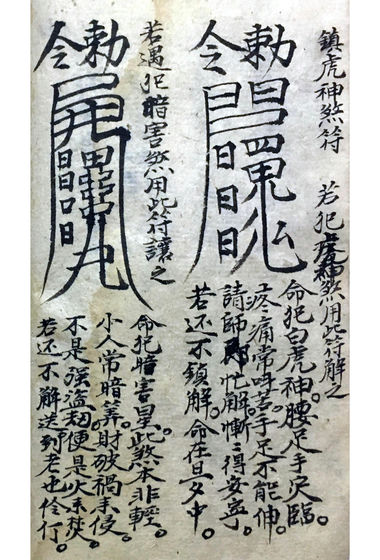 鎮虎神煞符
若犯虎神煞用此符解之
勅令
命犯白虎神腰足手灾臨
疼痛常呼苦手足不能伸。
請師郎忙解慚得安寧。
若还不鎖解。命在旦夕中。
若遇犯暗害煞用此符讓之
勅令
命犯暗害星。此煞本非輕。
小人常暗弄。財破禍未侵
不是强盗刼便是火未焚
若还不解送到老也伶仃。